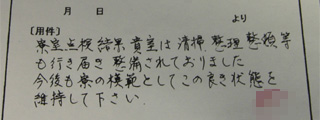 月 日
より
〔用件〕
寮室点検結果貴室は清掃、整理整頓等
も行き届き整備されておりました
今後も寮の模範としてこの良き状態を
維持して下さい.